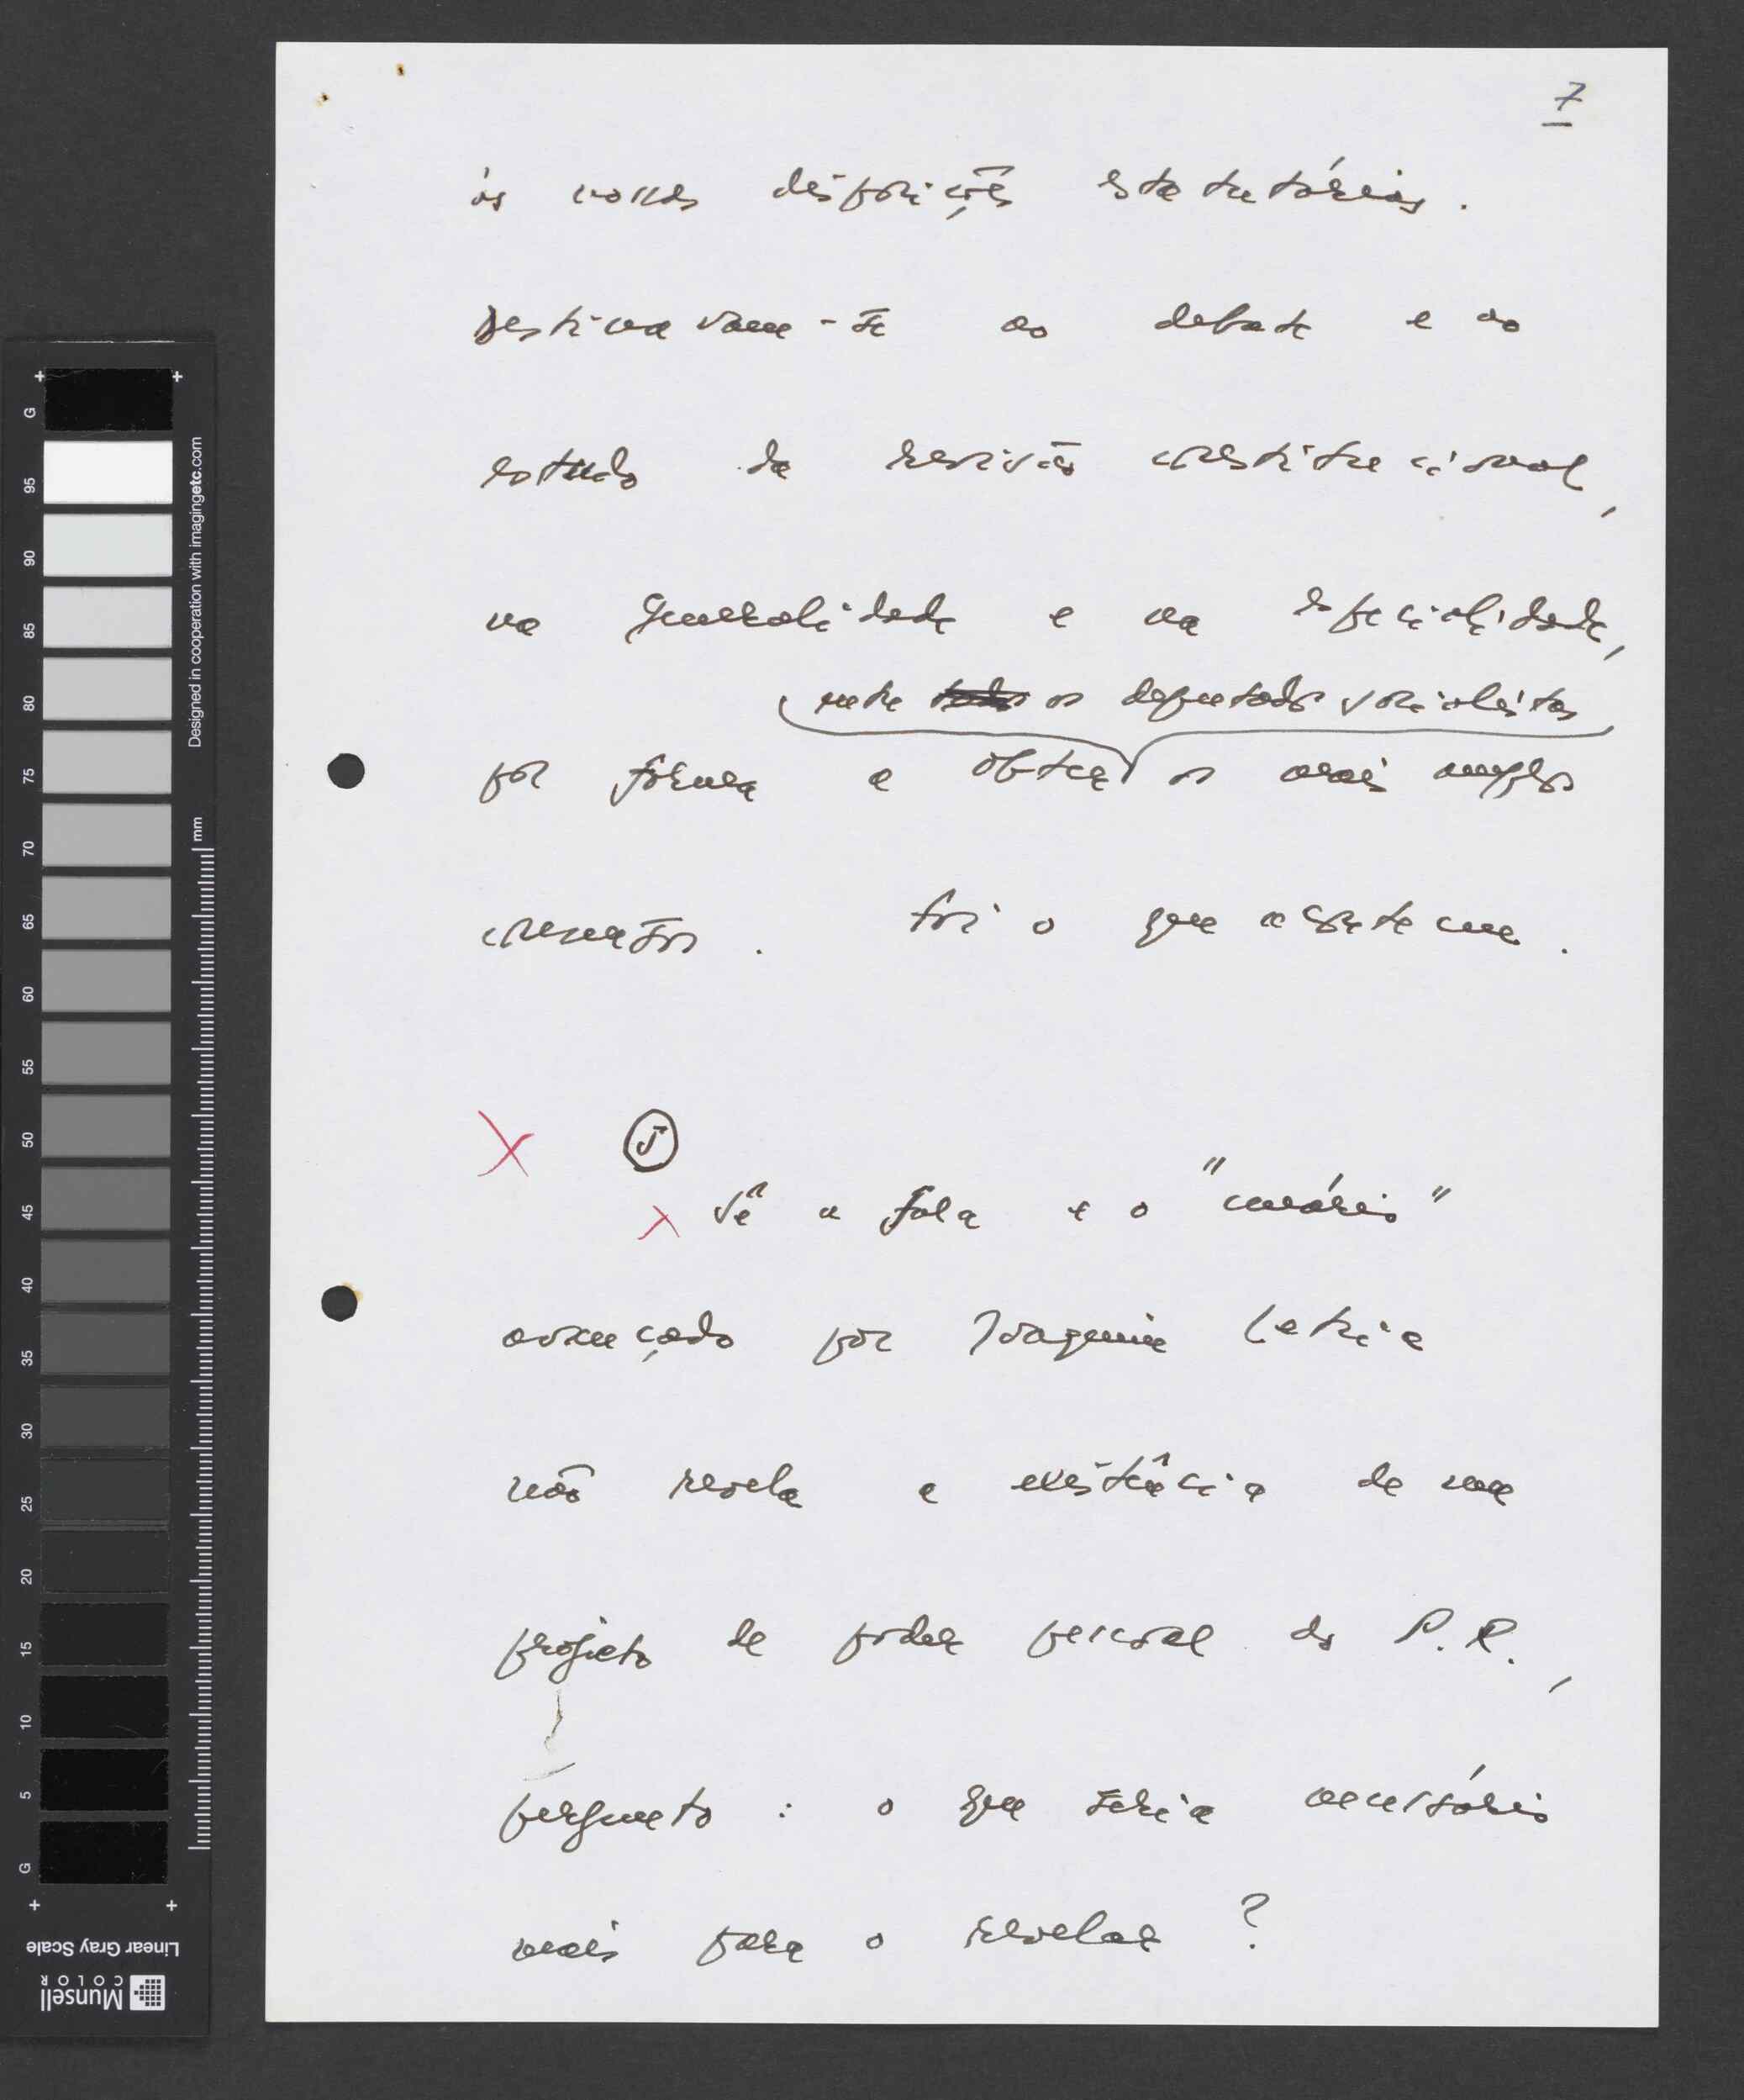 7
às nossas disposições estatutárias.
Destinavam-se ao debate e ao
estudo da revisão constitucional,
na generalidade e na especialidade,
entre todos os deputados socialistas
por forma a obter os mais amplos
consensos. Foi o que aconteceu.
X 5
x Se a fala e o "cenário"
avançado por Joaquim Letria
não revela a existência de um
projecto de poder pessoal do P.R.,
pergunto: o que seria necessário
mais para o revelar?
G 95 90 85 80 75 70 65 60 55 50 45 40 35 30 25 20 15 10 5 G
Designed in cooperation with imagingetc.com
mm
Linear Gray Scale
Munsell
COLOR